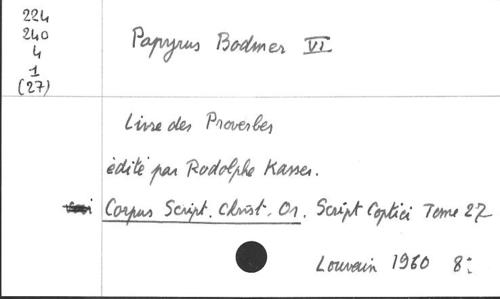 224
240
4
1
(27)
Papyrus Bodmer VI
Livre des Proverbes
édité par Rodolphe Kasser.
Corpus Script. Christ. Or. Script Coptici Tome 27
Louvain 1960 8: